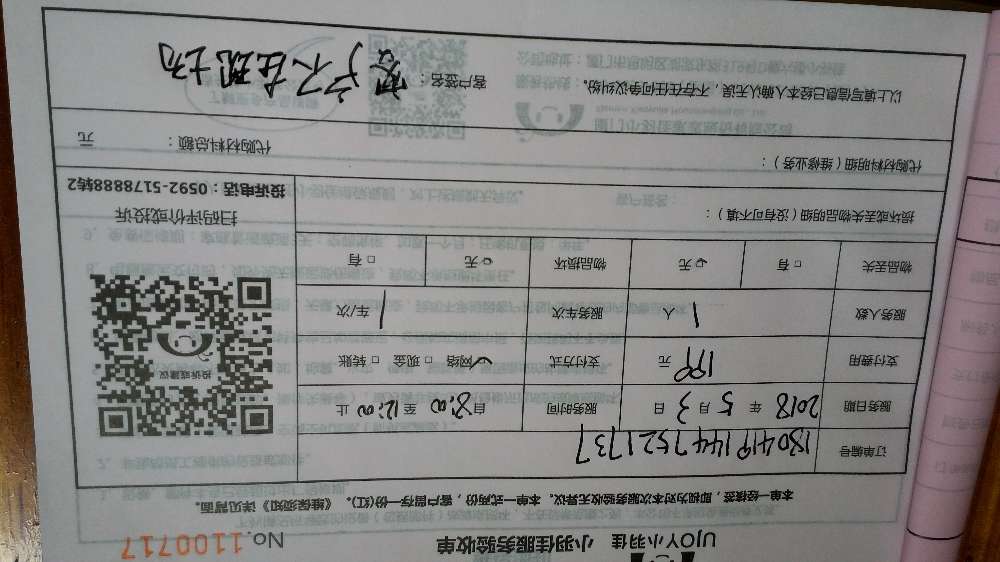 UJOY小羽佳 小羽佳服务验收单
No.1100717
本单一经接签,即视为对本次服务验收无异议。本单一式两份,客户留存一份(红)。《维保须知》详见背面。
订单编号 180419144 7521737
服务日期 2018 年 5 月 3 日 服务时间 自8:00 至 12:00 止
支付费用 199 元 支付方式 ☑网络 □现金 □转账
服务人数 1 人 服务车次 1 车/次
物品丢失 □有 ☑无 物品损坏 ☑无 □有
损坏或丢失物品明细(没有可不填):
投诉或建议
扫码评价或投诉
投诉电话:0592-5178888转2
代购材料明细(维修业务):
代购材料总额: 元
以上填写信息已经本人确认无误,不存在任何争议纠纷。
客户签名: 客户不在现场